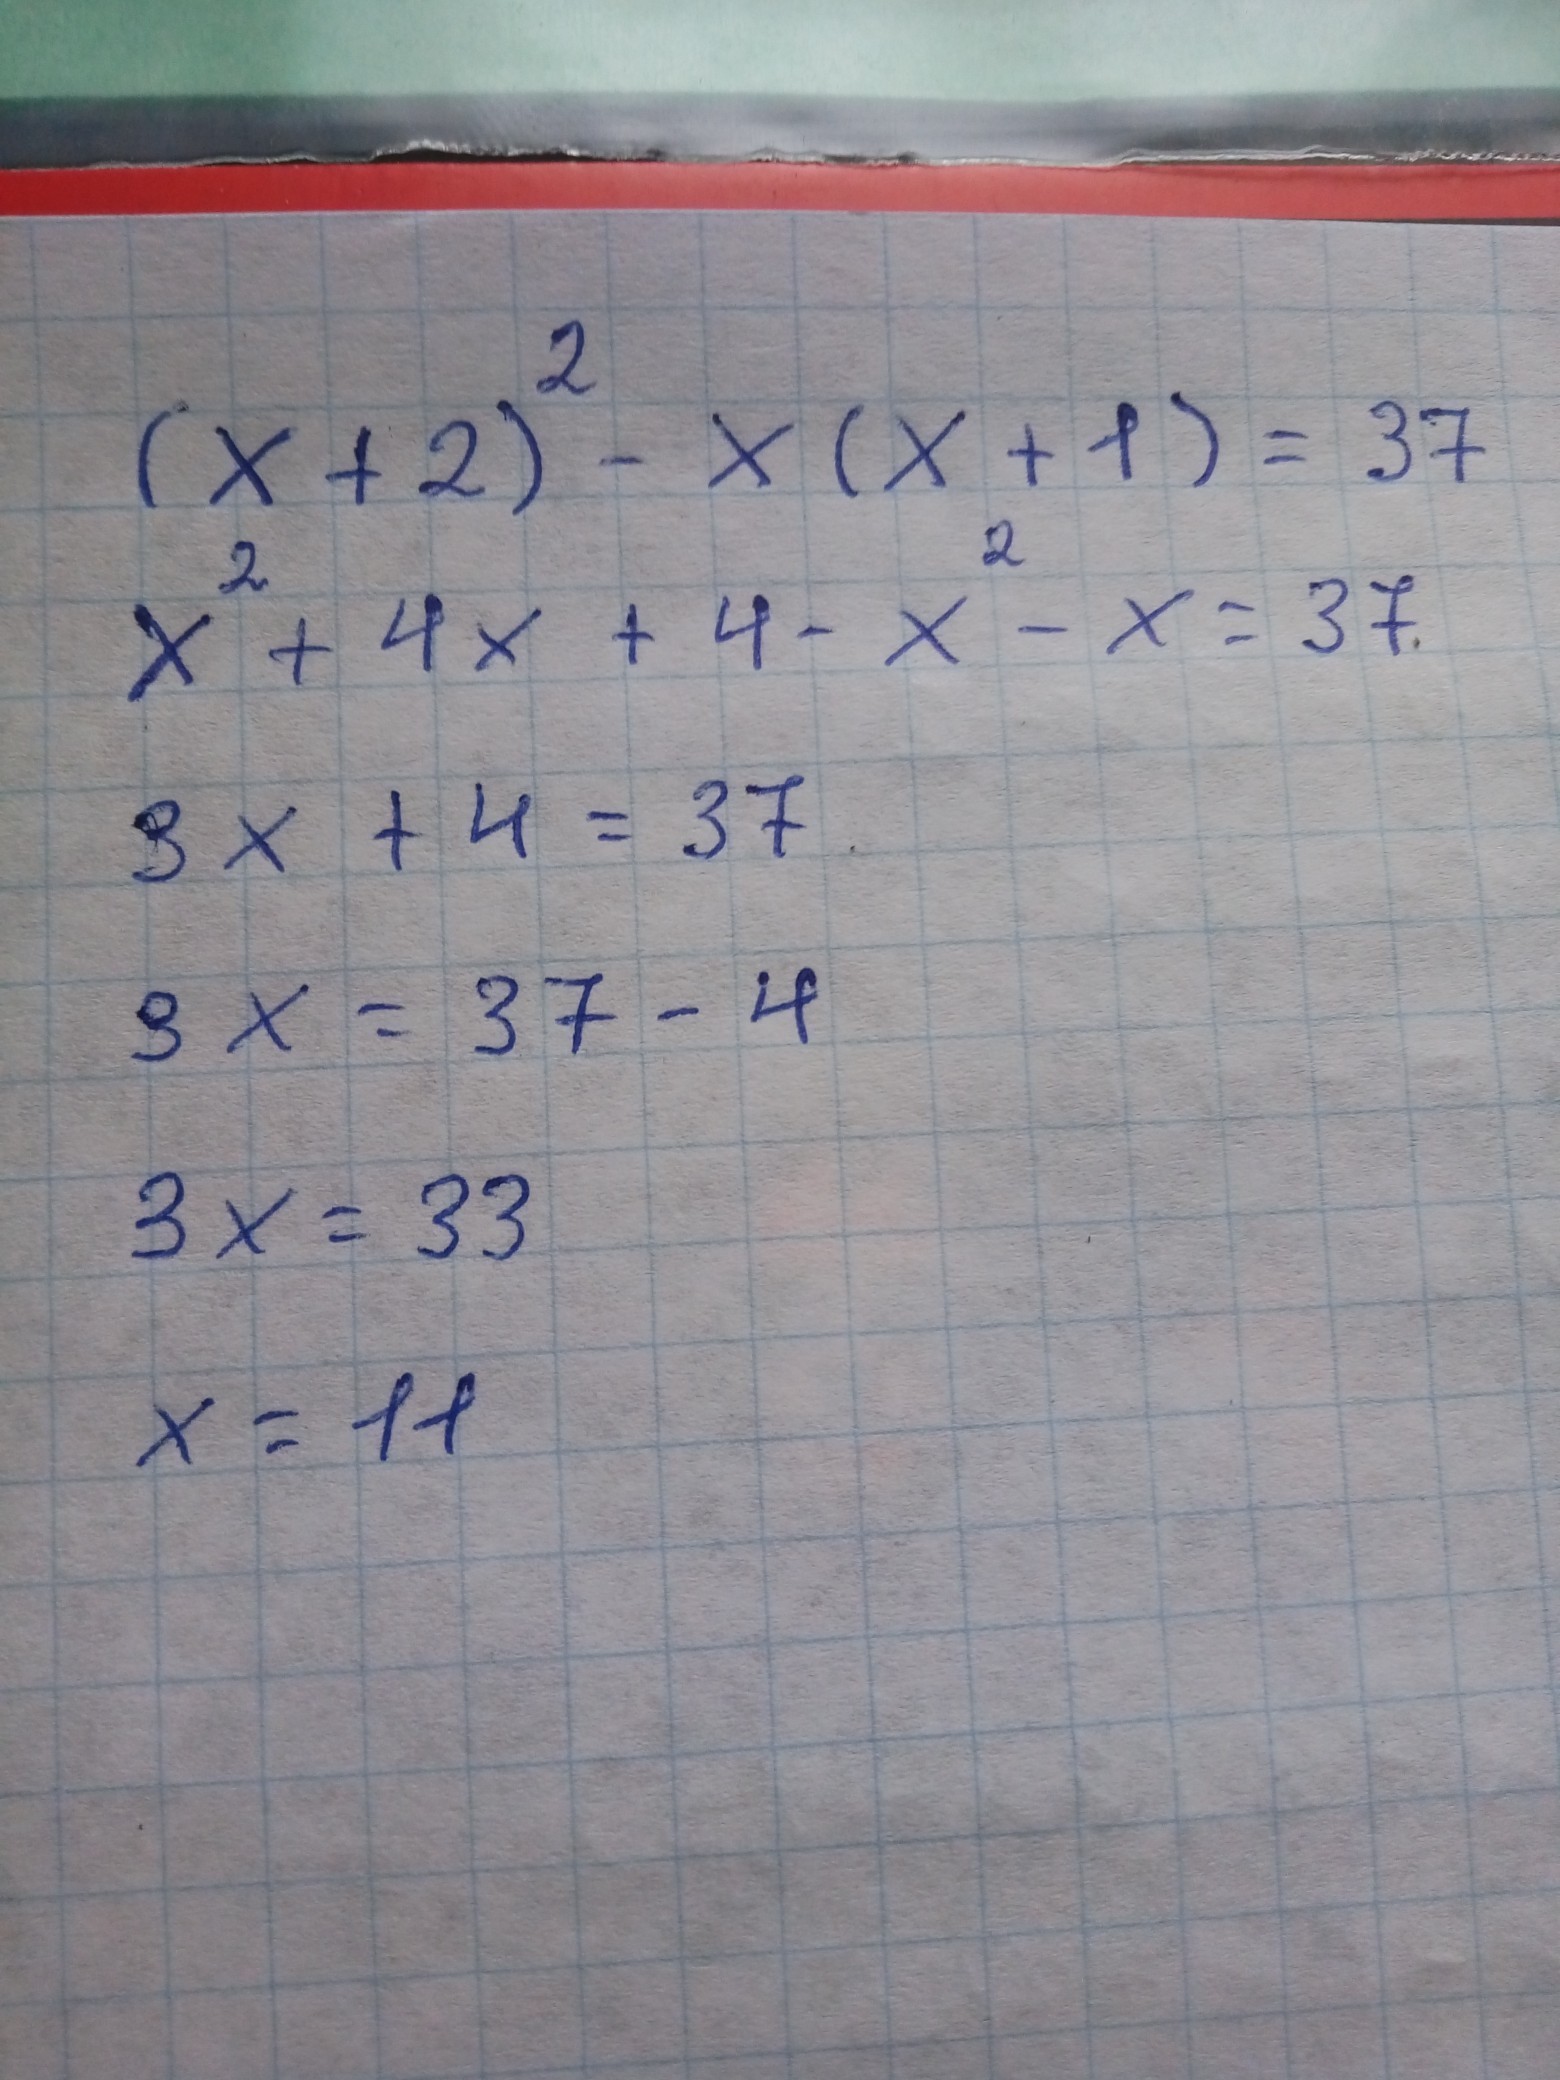 (x+2)² - x(x+1) = 37
x² + 4x + 4 - x² - x = 37
3x + 4 = 37
3x = 37 - 4
3x = 33
x = 11